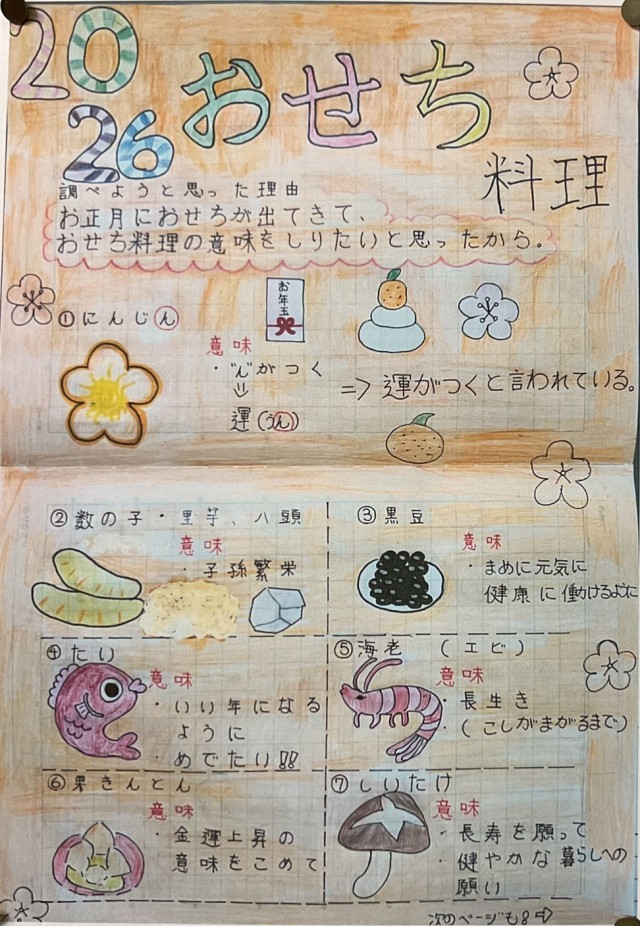 2026 おせち
料理
調べようと思った理由
お正月におせちが出てきて、
おせち料理の意味をしりたいと思ったから。
お年玉
①にんじん
意味
・"ん"がつく
⇓
運(うん)
=> 運がつくと言われている。
②数の子・里芋、八頭
意味
・子孫繁栄
③黒豆
意味
・まめに元気に
健康に働けるように
④たい
意味
・いい年になる
ように
・めでたい!!
⑤海老 (エビ)
意味
・長生き
・(こしがまがるまで)
⑥栗きんとん
意味
・金運上昇の
意味をこめて
⑦しいたけ
意味
・長寿を願って
・健やかな暮らしへの
願い
次のページも⇨